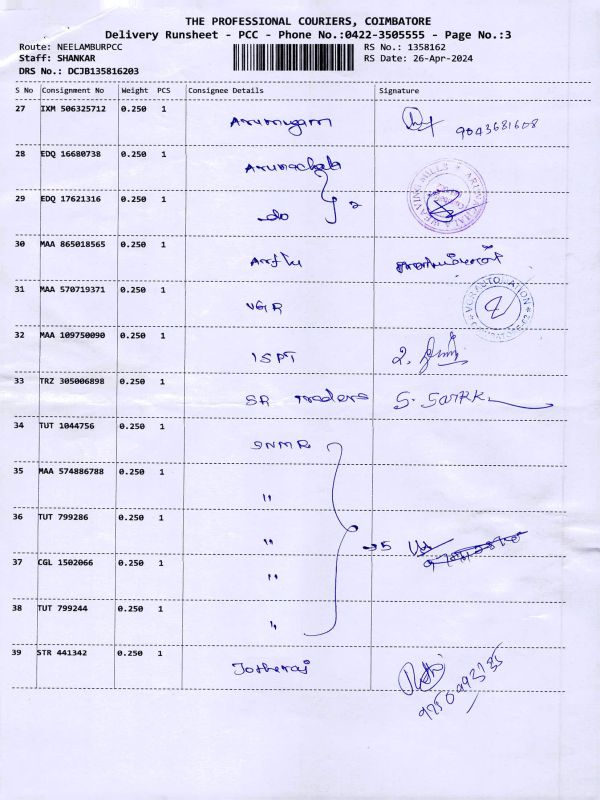 THE PROFESSIONAL COURIERS, COIMBATORE
Delivery Runsheet - PCC - Phone No.:0422-3505555 - Page No.:3
Route: NEELAMBURPCC RS No.: 1358162
Staff: SHANKAR RS Date: 26-Apr-2024
DRS No.: DCJB135816203
S No Consignment No Weight PCS Consignee Details Signature
27 IXM 506325712 0.250 1 Arumugam 9043681608
28 EDQ 16680738 0.250 1 Arunachala
29 EDQ 17621316 0.250 1 do 2
30 MAA 865018565 0.250 1
31 MAA 570719371 0.250 1 VGR
32 MAA 109750090 0.250 1 ISPT
33 TRZ 305006898 0.250 1 SR Traders S. Sarkk
34 TUT 1044756 0.250 1 SNMR
35 MAA 574886788 0.250 1 "
36 TUT 799286 0.250 1 " 5
37 CGL 1502066 0.250 1 "
38 TUT 799244 0.250 1 "
39 STR 441342 0.250 1 Jotheraj